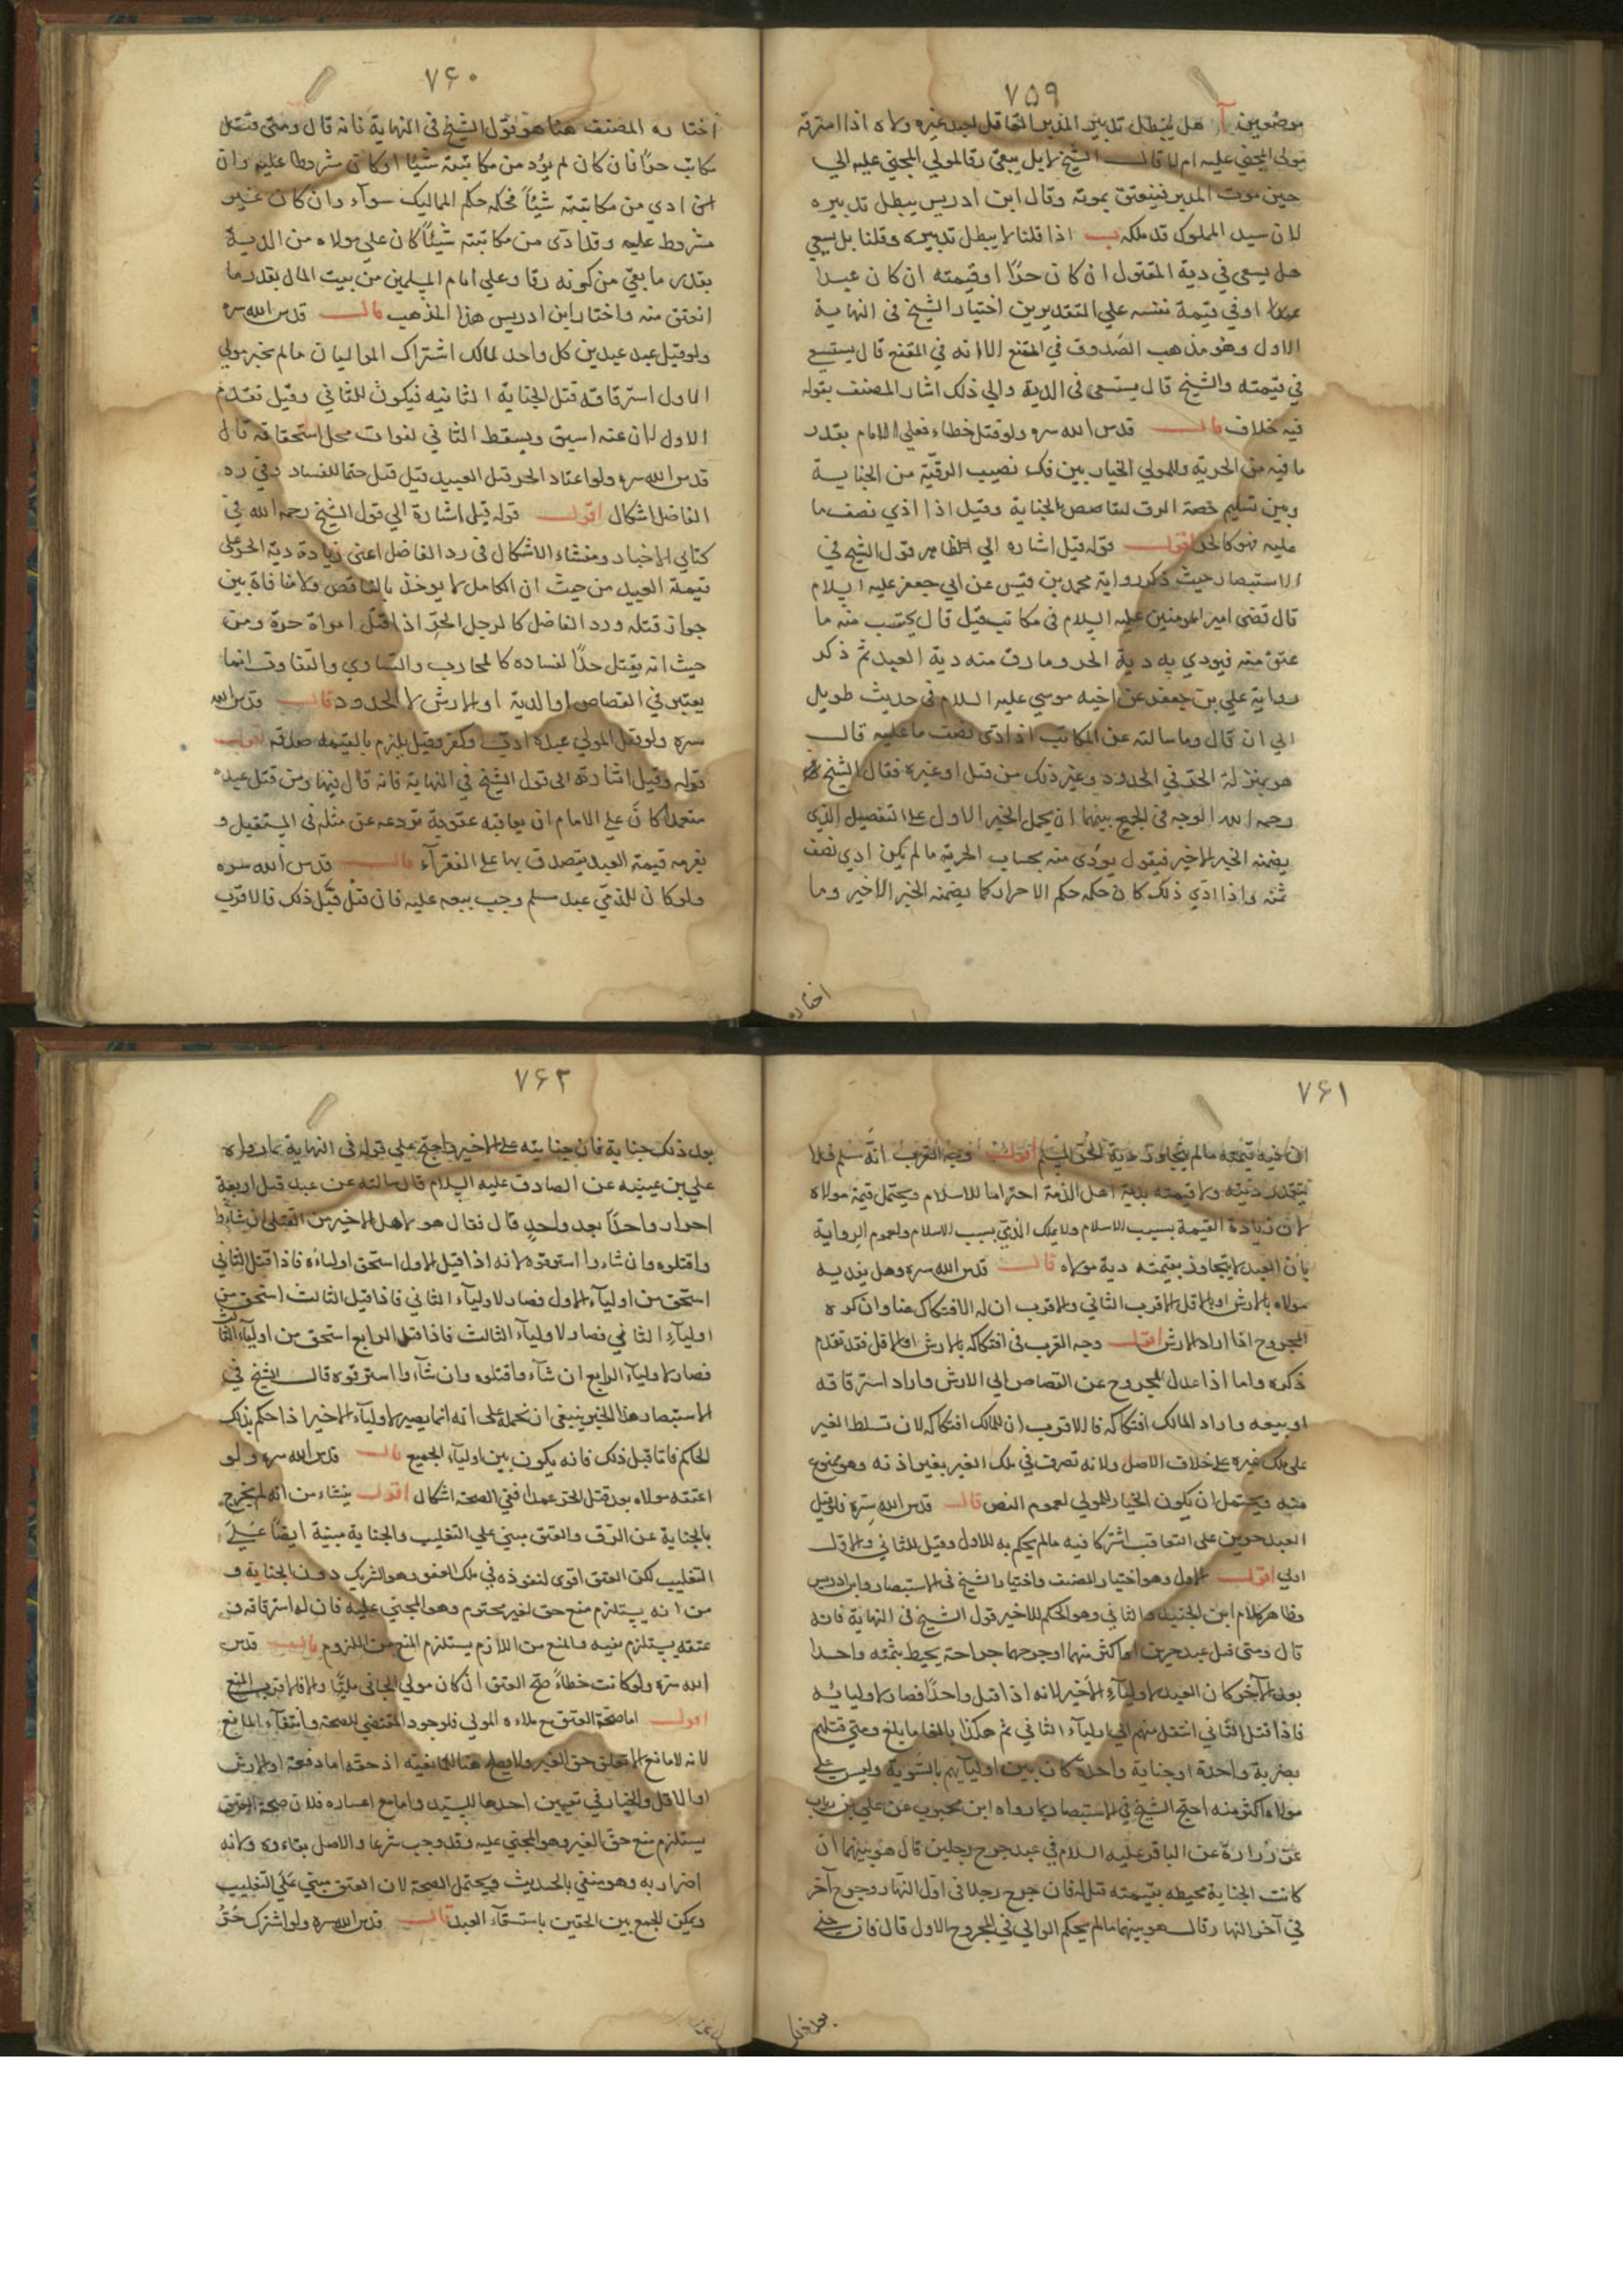 ۷۵۹
موضعين آ هل يبطل تدبير المدبر القاتل لعبد غيره ولاه اذا استرقه
مولى المجني عليه ام لا قال الشيخ لا بل يبقى رقا لمولي المجني عليه الي
حين موت المدبر فينعتق بموته وقال ابن ادريس يبطل تدبيره
لان سيد المملوك قد ملكه ب اذا قلنا لا يبطل تدبيره وقلنا بل يسعي
هل يسعى في دية المقتول ان كان حرًا او قيمته ان كان عبدا
او في قيمة نفسه علي التقديرين اختيار الشيخ في النهاية
الاول وهو مذهب الصدوق في المقنع الا انه في المقنع قال يستسع
في قيمته والشيخ قال يستسعى في الدية والي ذلك اشار المصنف بقوله
فيه خلاف قال قدس الله سره ولو قتل خطاء فعلي الامام بقدر
ما فيه من الحرية وللمولي الخيار بين فك نصيب الرقية من الجناية
وبين تسليم حصة الرق لتقاصص بالجناية وقيل اذا ادي نصف ما
عليه فهو كالحر اقول قوله قيل اشاره الي الظاهر قول الشيخ في
الاستبصار حيث ذكر رواية محمد بن قيس عن ابي جعفر عليه السلام
قال قضى امير المومنين عليه السلام في مكاتب قتل قال يحتسب منه ما
عتق منه فيودي به دية الحر وما رق منه دية العبد ثم ذكر
رواية علي بن جعفر عن اخيه موسي عليه السلام في حديث طويل
الي ان قال وما سالته عن المكاتب اذا ادى نصف ما عليه قال
هو بمنزلة الحر في الحدود وغير ذلك من قتل او غيره فقال الشيخ
رحمه الله الوجه في الجمع بينهما ان يحمل الخبر الاول على التفصيل الذي
يضمنه الخبر الاخير فيقول يودى منه بحساب الحرية ما لم يكن ادي نصف
ثمنه واذا ادي ذلك كان حكمه حكم الاحرار كما يضمنه الخبر الاخير وما
اختاره
۷۶۰
اختاره المصنف هنا هو قول الشيخ في النهاية فانه قال ومتى قتل
مكاتب حرًا فان كان لم يؤد من مكاتبته شيئا او كان مشروطا عليه وان
ادي من مكاتبته شيئاً فحكمه حكم المماليك سوآء وان كان غير
مشروط عليه وقد ادى من مكاتبته شيئاً كان علي مولاه من الدية
بقدر ما بقي من كونه رقا وعلي امام المسلمين من بيت المال بقدر ما
انعتق منه واختار ابن ادريس هذا المذهب قال قدس الله سره
ولو قتل عبد عبدين كل واحد لمالك اشتراك المواليان ما لم يخير مولي
الاول استرقاقه قبل الجناية الثانيه فيكون للثاني وقيل تقدم
الاول لان عنه اسبق ويسقط الثاني لفوات محل استحقاقه قال
قدس الله سره ولو اعتاد الحر قتل العبيد قيل قتل حتما للفساد وفي رد
الفاضل اشكال اقول قوله قيل اشارة الي قول الشيخ رحمه الله في
كتابي الاخبار ومنشاء الاشكال في رد الفاضل اعني زيادة دية الحر على
قيمة العبيد من حيث ان الكامل لا يوخذ بالناقص ولا منافاة بين
جواز قتله ورد الفاضل كالرجل الحر اذا قتل امراة حرة ومن
حيث انه يقتل حدًا لفساده كالمحارب والتساوي والتفاوت انما
يعتبر في القصاص او الدية او الارش لا الحدود قال قدس الله
سره ولو قتل المولي عبده ادب وكفر وقيل يلزم بالقيمه صدقه اقول
قوله وقيل اشارة الى قول الشيخ في النهاية فانه قال فيها ومن قتل عبده
متعمدًا كان علي الامام ان يعاقبه عقوبة تردعه عن مثله في المستقبل و
يغرمه قيمة العبد يتصدق بها على الفقرآء قال قدس الله سره
ولو كان للذمي عبد مسلم وجب بيعه عليه فان قتل قبل ذلك فالاقرب
۷۶۱
ان فيه قيمته ما لم يتجاوز دية الحر المسلم اقول وجه القرب انه مسلم فلا
يتقدر ديته ولا قيمته بدية اهل الذمة احتراما للاسلام ويحتمل قيمة مولاه
لان زيادة القيمة بسبب الاسلام ولا يملك الذمي بسبب الاسلام ولعموم الرواية
بان العبد لا يتجاوز بقيمته دية مولاه قال قدس الله سره وهل يفديه
مولاه بالارش او بالاقل الاقرب الثاني والاقرب ان له الافتكاك هنا وان كره
المجروح اذا اراد الارش اقول وجه القرب في افتكاكه بالارش او الاقل فقد تقدم
ذكره واما اذا عدل المجروح عن القصاص الي الارش واراد استرقاقه
او بيعه واراد المالك افتكاكه فالاقرب ان للمالك افتكاكه لان تسلط الغير
على ملك غيره على خلاف الاصل ولانه تصرف في ملك الغير بغير اذنه وهو ممنوع
منه ويحتمل ان يكون الخيار للمولي لعموم النص قال قدس الله سره فلو قتل
العبد حرين على التعاقب اشتركا فيه ما لم يحكم به للاول وقيل للثاني والاول
اولي اقول الاول وهو اختيار المصنف واختيار الشيخ في الاستبصار وابن ادريس
وظاهر كلام ابن الجنيد والثاني وهو الحكم للاخير قول الشيخ في النهاية فانه
قال ومتى قتل عبد حرين او اكثر منهما او جرحهما جراحة يحيط بثمنه واحدا
بعد الآخر كان العبد لاوليآء الاخير لانه اذا قتل واحدًا فصار لاوليائه
فاذا قتل الثاني انتقل منهم الي اوليآء الثاني ثم هكذا بالغا ما بلغ ومتي قتلهم
بضربة واحدة او جناية واحدة كان بين اوليآيهم بالسوية وليس علي
مولاه اكثر منه احتج الشيخ في الاستبصار بما رواه ابن محبوب عن علي بن رياب
عن زرارة عن الباقر عليه السلام في عبد جرح رجلين قال هو بينهما ان
كانت الجناية محيطه بقيمته قيل له فان جرح رجلا في اول النهار وجرح آخر
في آخر النهار قال هو بينهما ما لم يحكم الوالي في المجروح الاول قال فان جني
بعد ذلك
۷۶۲
بعد ذلك جناية فان جنايته على الاخير واحتج علي قوله في النهاية بما رواه
علي بن عقبه عن الصادق عليه السلام قال سالته عن عبد قتل اربعة
احرار واحدًا بعد واحدٍ قال فقال هو لاهل الاخير من القتلى ان شآؤا
واقتلوه وان شاءوا استرقوه لانه اذا قتل الاول استحق اولياءه فاذا قتل الثاني
استحق من اوليآء الاول فصار لاوليآء الثاني فاذا قتل الثالث استحق من
اوليآء الثاني فصار لاوليآء الثالث فاذا قتل الرابع استحق من اوليآء الثالث
فصار لاوليآء الرابع ان شآءوا قتلوه وان شآءوا استرقوه قال الشيخ في
الاستبصار هذا الخبر ينبغي ان نحمله على انه انما يصير لاوليآء الاخير اذا حكم بذلك
الحاكم فاما قبل ذلك فانه يكون بين اوليآء الجميع قال قدس الله سره ولو
اعتقه مولاه بعد قتل الحر عمدا ففي الصحة اشكال اقول ينشاء من انه لم يخرج
بالجناية عن الرق والعتق مبني علي التغليب والجناية مبنية ايضًا عَلَى
التغليب لكن العتق اقوى لنفوذه في ملك الغير وهو الشريك دون الجناية و
من انه يستلزم منع حق لغير محترم وهو المجني عليه فان له استرقاقه و
عتقه يستلزم نفيه والمنع من اللازم يستلزم المنع من الملزوم قال قدس
الله سره ولو كانت خطاءً صح العتق ان كان مولي الجاني مليًا والا فالاقرب المنع
اقول اما صحة العتق مع ملاءه المولي فلوجود المقتضي للصحة وانتفآء المانع
لانه لا مانع الا تعلق حق الغير ولا يصلح هنا للمانعية اذ حقه اما دفعه او الارش
او الاقل والخيار في تعيين احدها للسيد واما مع اعساره فلان صحة العتق
يستلزم منع حق الغير وهو المجني عليه وقد وجب شرعا والاصل بقاءه ولانه
اضرار به وهو منفي بالحديث ويحتمل الصحة لان العتق مبني عَلَى التغليب
ويمكن الجمع بين الحقين باستسعآء العبد قال قدس الله سره ولو اشترك حُرّ